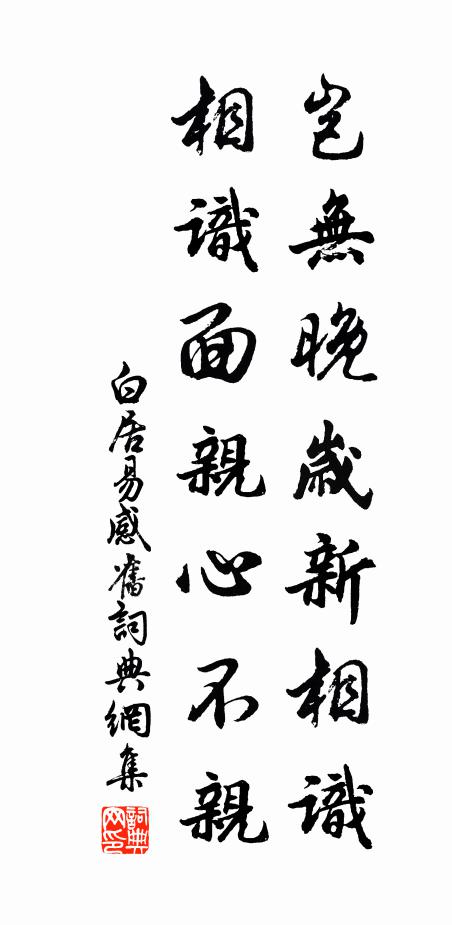 豈無晚歲新相識
相識面親心不親
白居易感舊詞典網集
詞典网印